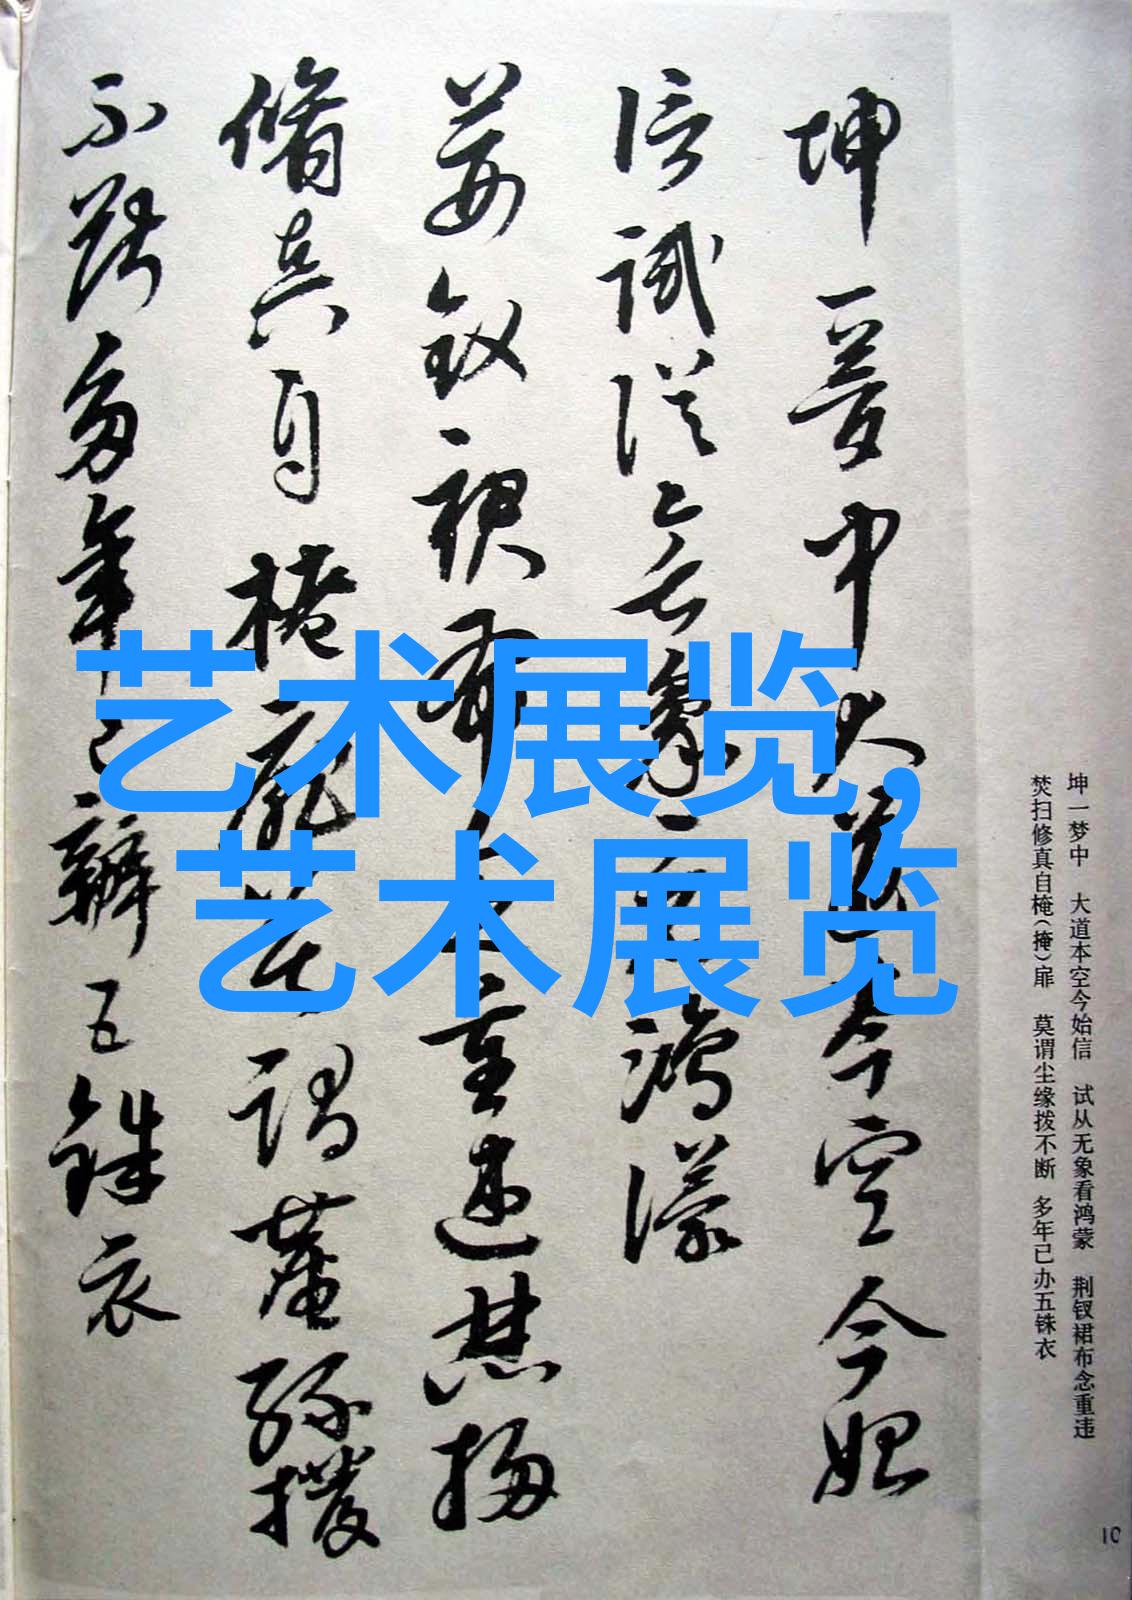 坤一夢中大道本空今始
信試從無象看鴻濛
荊釵裙布念重違焚掃
脩真自掩扉莫謂塵緣撥
不斷多年已辦五銖衣
坤一梦中　大道本空今始信　试从无象看鸿蒙　荆钗裙布念重违
焚扫修真自(掩)扉　莫谓尘缘拨不断　多年已办五铢衣
10
艺术展览,
艺术展览